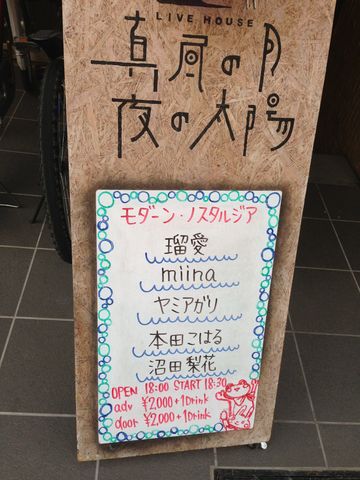 LIVE HOUSE
真風の月
夜の太陽
モダーン・ノスタルジア
瑠愛
miina
ヤミアガリ
本田こはる
沼田梨花
OPEN 18:00 START 18:30
adv ¥2,000+1Drink
door ¥2,000+1Drink